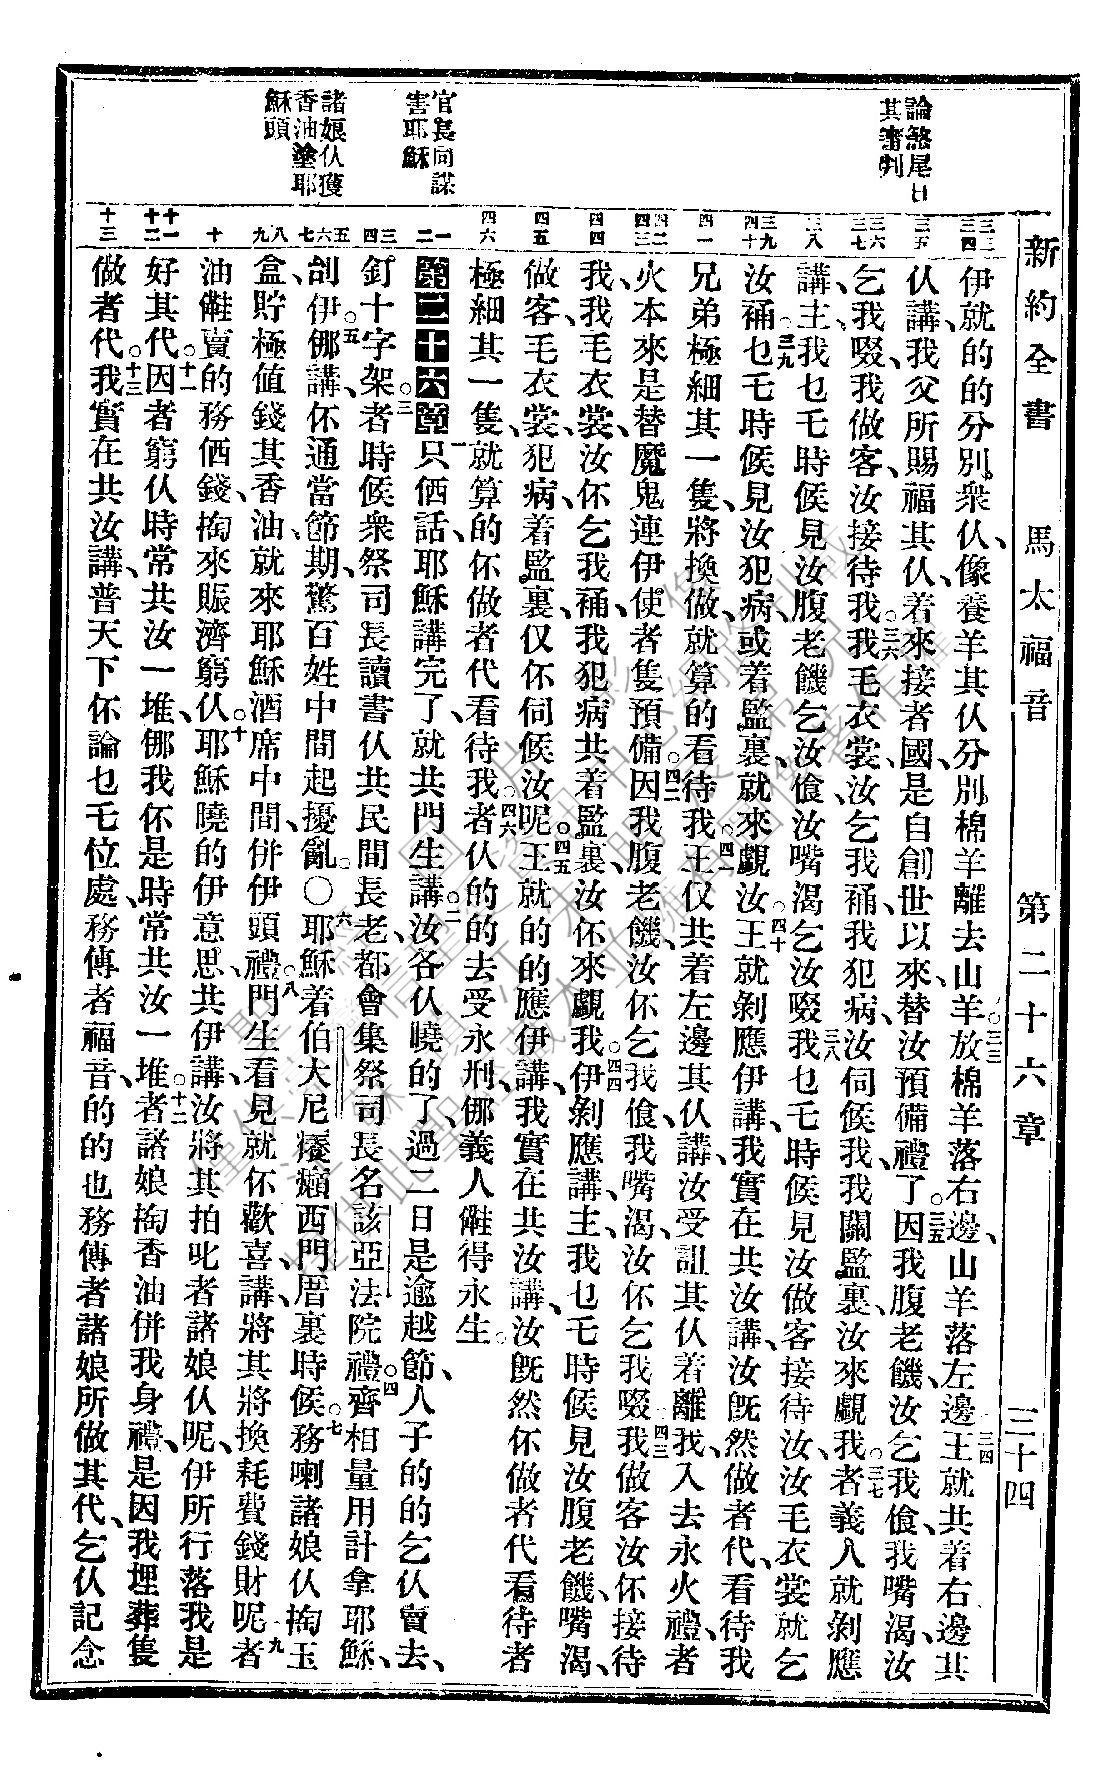 新約全書 馬太福音 第二十六章 三十四
論煞尾日
其審判
官長同謀
害耶穌
諸娘仈獲
香油塗耶
穌頭
伊就的的分別衆仈、像養羊其仈分別棉羊離去山羊、○三三放棉羊落右邊、山羊落左邊、三四王就共着右邊其
仈講、我父所賜福其仈、着來接者國、是自創世以來、替汝預備禮了、三五因我腹老饑、汝乞我飡、我嘴渴、汝
乞我啜、我做客、汝接待我、三六我毛衣裳、汝乞我䘥、我犯病、汝伺候我、我關監裏、汝來覷我、○三七者義人就剝應
講、主、我乜乇時候見汝腹老饑乞汝飡、汝嘴渴乞汝啜、三八我乜乇時候見汝做客接待汝、汝毛衣裳就乞
汝䘥、○三九乜乇時候、見汝犯病、或着監裏、就來覷汝、○四十王就剝應伊講、我實在共汝講、汝旣然做者代、看待我
兄弟極細其一隻、將換做、就算的看待我、○四一王仅共着左邊其仈講、汝受詛其仈、着離我、入去永火禮、者
火本來是替魔鬼連伊使者隻預備、○四二因我腹老饑、汝伓乞我飡、我嘴渴、汝伓乞我啜、四三我做客、汝伓接待
我、我毛衣裳、汝伓乞我䘥、我犯病共着監裏、汝伓來覷我、○四四伊剝應講、主、我乜乇時候見汝腹老饑、嘴渴、
做客、毛衣裳、犯病、着監裏、仅伓伺候汝呢、○四五王就的的應伊講、我實在共汝講、汝旣然伓做者代看待者
極細其一隻、就算的伓做者代看待我、○四六者仈的的去受永刑、那義人㑚得永生。
第二十六章 一只㑚話、耶穌講完了、就共門生講、○二汝各仈曉的了、過二日是逾越節、人子的的乞仈賣去、
釘十字架、○三者時候、衆祭司長讀書仈共民間長老、都會集祭司長名該亞法院禮、○四齊相量用計拿耶穌、
刣伊、○五那講、伓通當節期、驚百姓中間起擾亂。○六耶穌着伯大尼癢癩西門厝裏時候、○七務喇諸娘仈掏玉
盒、貯極值錢其香油、就來耶穌酒席中間、併伊頭禮、○八門生看見就伓歡喜、講、將其將換耗費錢財呢、九者
油㑚賣的務㑚錢、掏來賑濟窮仈、○十耶穌曉的伊意思、共伊講、汝將其拍吡者諸娘仈呢、伊所行落我是
好其代、○十一因者窮仈時常共汝一堆、那我伓是時常共汝一堆、○十二者諸娘掏香油併我身禮、是因我埋葬隻
做者代、○十三我實在共汝講、普天下伓論乜乇位處、務傳者福音、的的也務傳者諸娘所做其代、乞仈記念